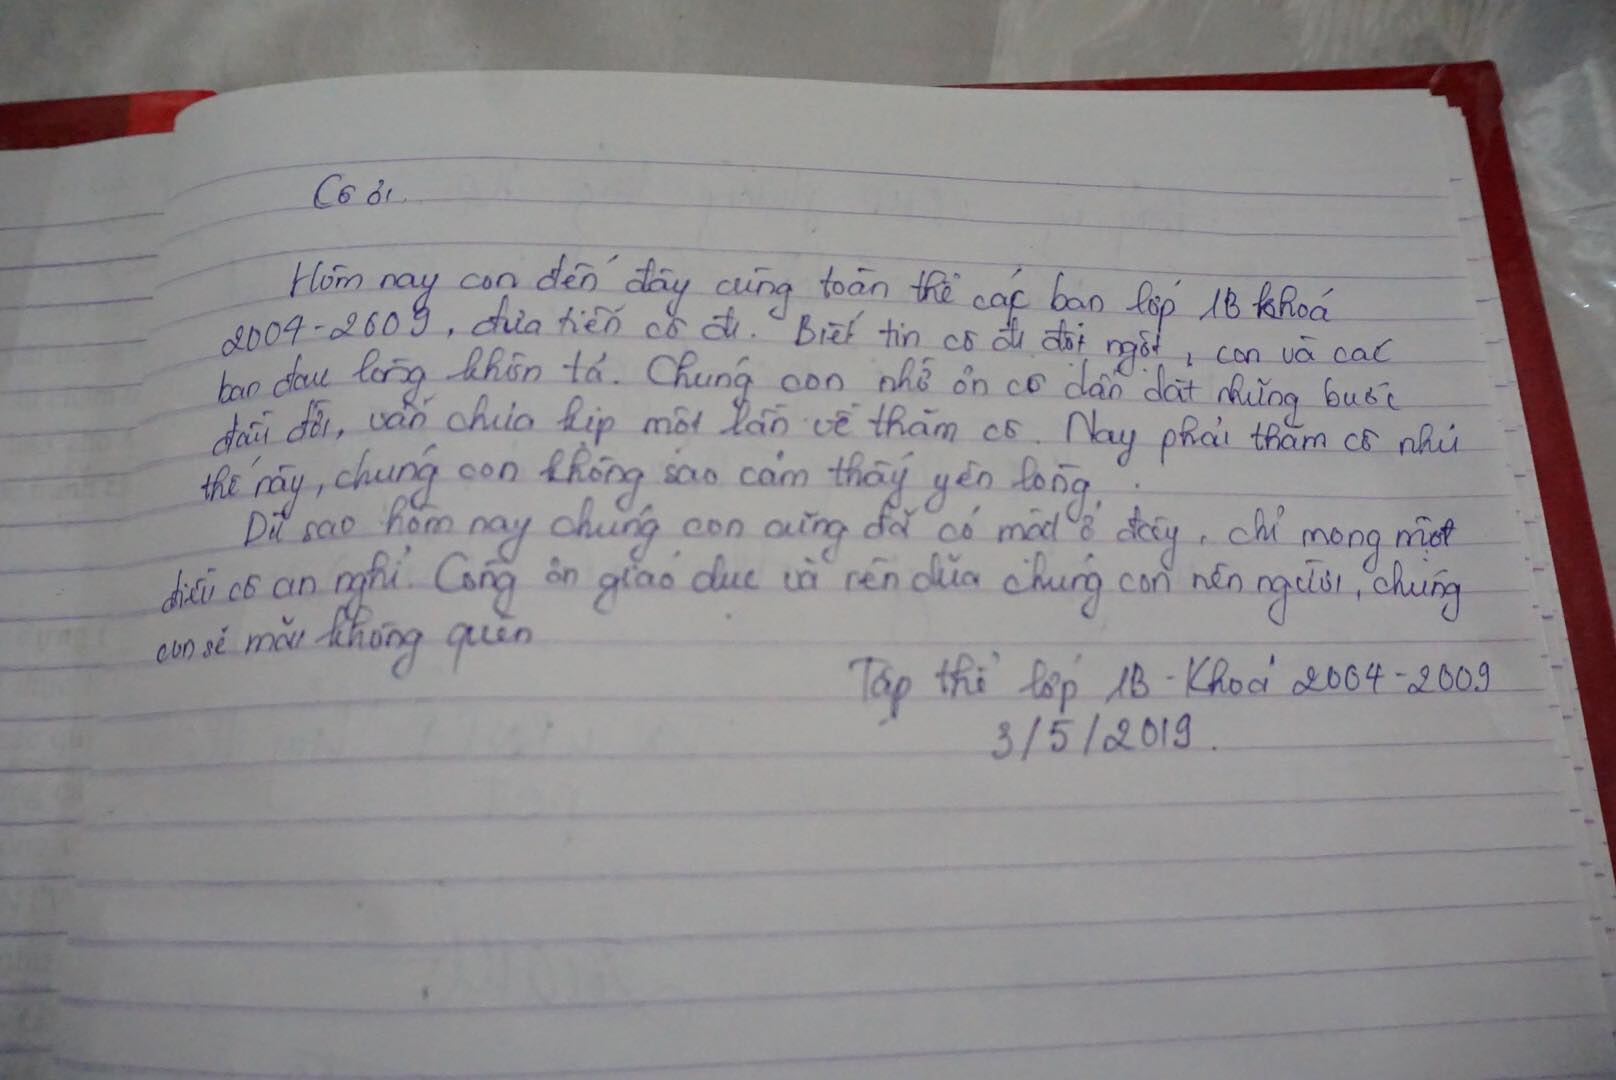 Cô ơi.
Hôm nay con đến đây cùng toàn thể các bạn lớp 1B khoá
2004-2009, đưa tiễn cô đi. Biết tin cô đi đột ngột, con và các
bạn đau lòng khôn tả. Chúng con nhớ ơn cô dẫn dắt những bước
đầu đời, vẫn chưa kịp một lần về thăm cô. Nay phải thăm cô như
thế này, chúng con không sao cảm thấy yên lòng.
Dù sao hôm nay chúng con cũng đã có mặt ở đây, chỉ mong một
điều cô an nghỉ. Công ơn giáo dục và rèn dũa chúng con nên người, chúng
con sẽ mãi không quên
Tập thể lớp 1B - Khoá 2004-2009
3/5/2019.